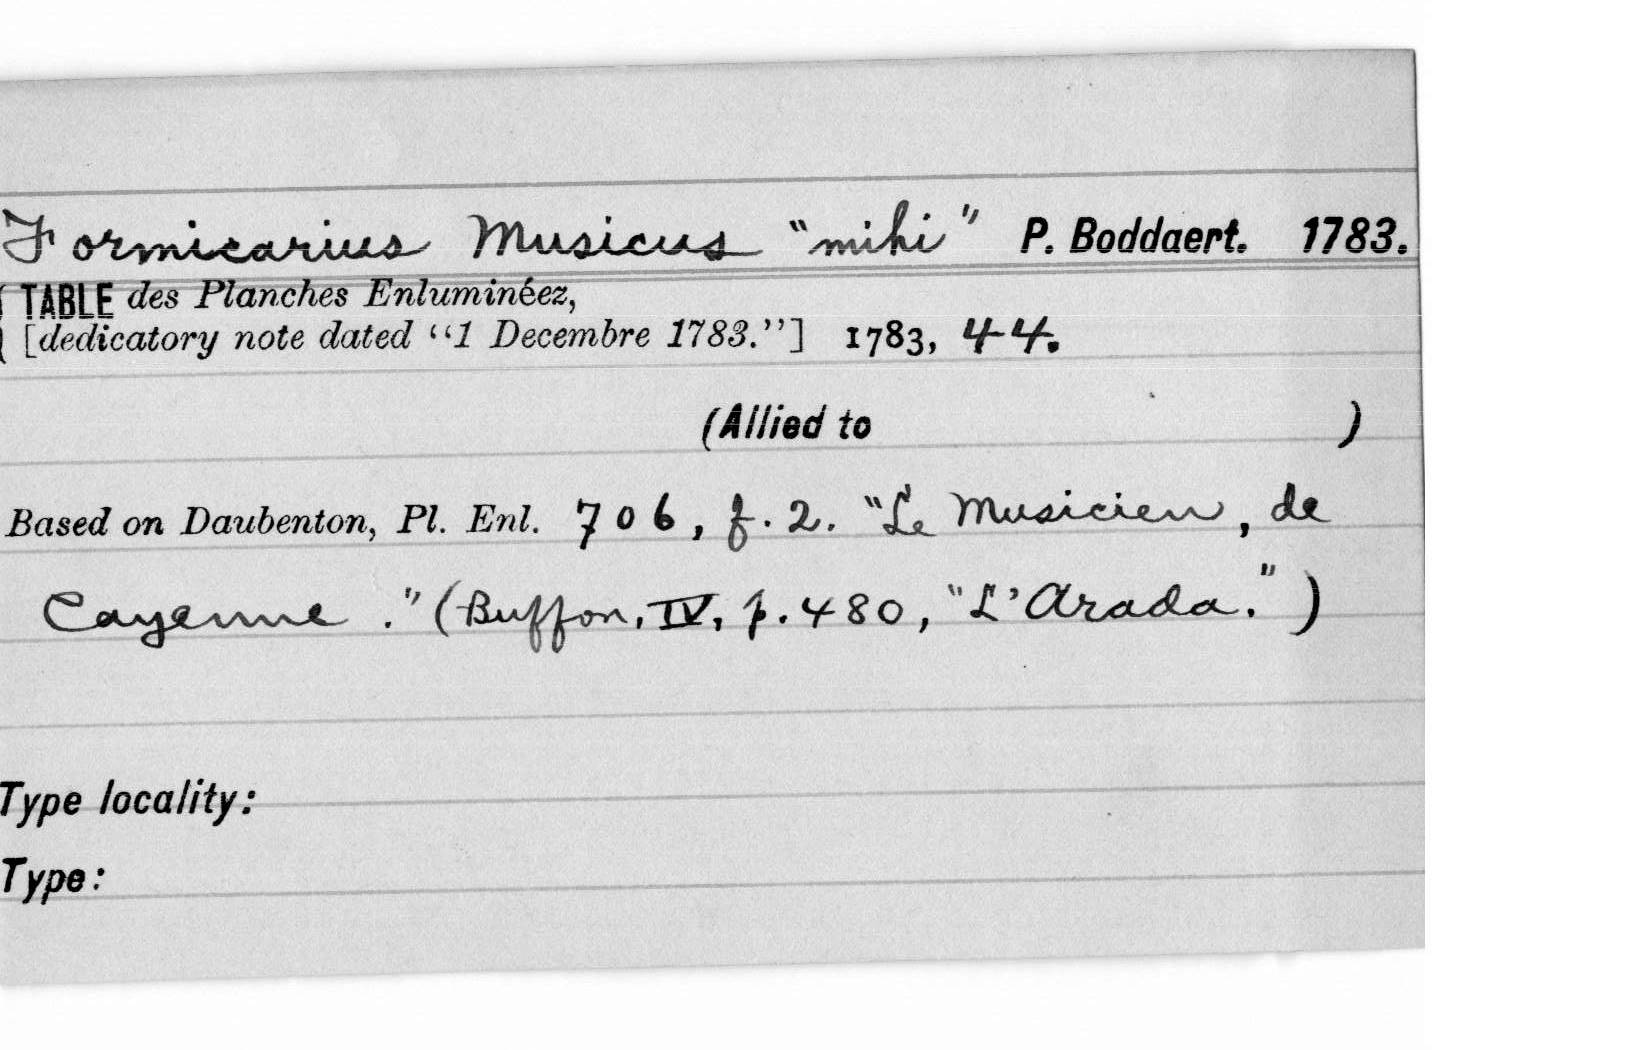 Formicarius Musicus "mihi" P. Boddaert. 1783.
TABLE des Planches Enluminéez,
[dedicatory note dated "1 Decembre 1783."] 1783, 44.
(Allied to )
Based on Daubenton, Pl. Enl. 706, f. 2. "Le Musicien, de
Cayenne." (Buffon, IV, p. 480, "L'Arada.")
Type locality:
Type: